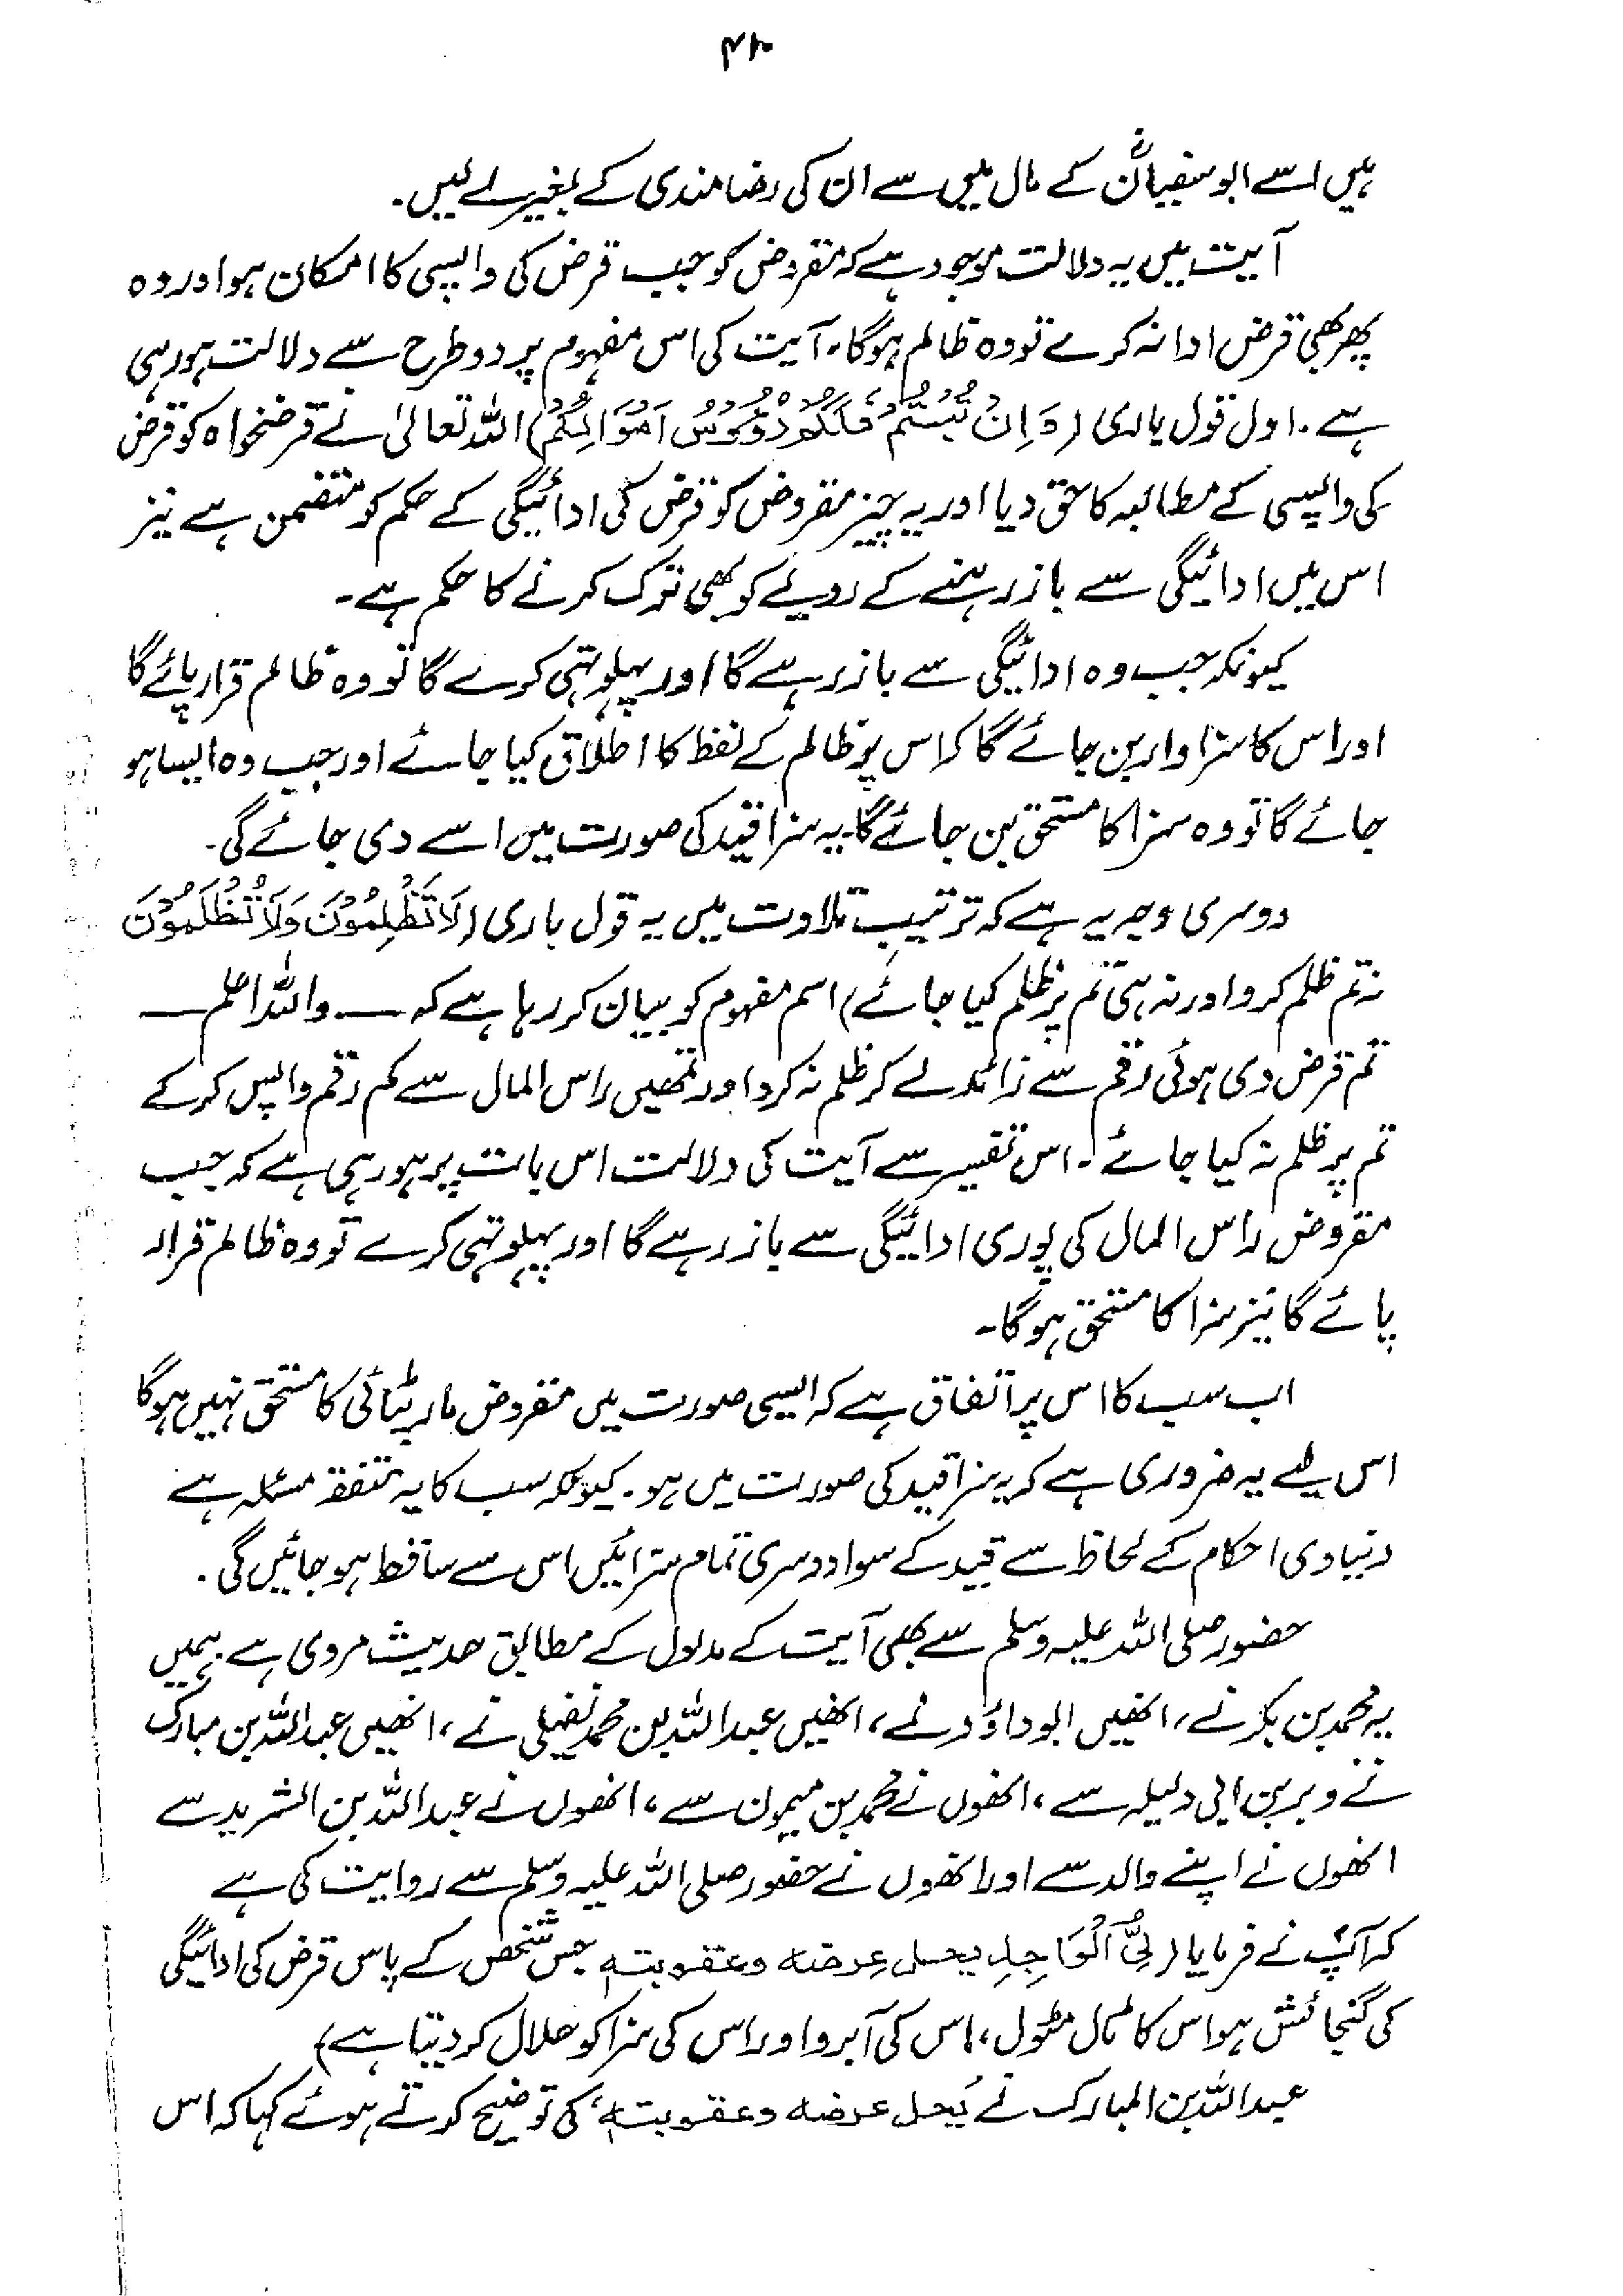 ہیں اسے ابوسفیانؓ کے مال میں سے ان کی رضامندی کے بغیر لے لیں۔
آیت میں یہ دلالت موجود ہے کہ مقروض کو جب قرض کی واپسی کا امکان ہو اور وہ
پھر بھی قرض ادا نہ کرے تو وہ ظالم ہوگا۔ آیت کی اس مفہوم پر دو طرح سے دلالت ہو رہی
ہے۔ اول قول باری (وَاِنْ تُبْتُمْ فَلَكُمْ رُؤُوْسُ اَمْوَالِكُمْ) اللہ تعالیٰ نے قرضخواہ کو قرض
کی واپسی کے مطالبہ کا حق دیا اور یہ چیز مقروض کو قرض کی ادائیگی کے حکم کو متضمن ہے نیز
اس میں ادائیگی سے باز رہنے کے رویے کو بھی ترک کرنے کا حکم ہے۔
کیونکہ جب وہ ادائیگی سے باز رہے گا اور پہلوتہی کرے گا تو وہ ظالم قرار پائے گا
اور اس کا سزاوار بن جائے گا کہ اس پر ظالم کے لفظ کا اطلاق کیا جائے اور جب وہ ایسا ہو
جائے گا تو وہ سزا کا مستحق بن جائے گا۔ یہ سزا قید کی صورت میں اسے دی جائے گی۔
دوسری وجہ یہ ہے کہ ترتیب تلاوت میں یہ قول باری (لَا تَظْلِمُوْنَ وَلَا تُظْلَمُوْنَ
نہ تم ظلم کرو اور نہ ہی تم پر ظلم کیا جائے) اسم مفہوم کو بیان کر رہا ہے کہ — واللہ اعلم —
تم قرض دی ہوئی رقم سے زائد لے کر ظلم نہ کرو اور تمھیں راس المال سے کم رقم واپس کر کے
تم پر ظلم نہ کیا جائے۔ اس تفسیر سے آیت کی دلالت اس بات پر ہو رہی ہے کہ جب
مقروض راس المال کی پوری ادائیگی سے باز رہے گا اور پہلوتہی کرے تو وہ ظالم قرار
پائے گا نیز سزا کا مستحق ہوگا۔
اب سب کا اس پر اتفاق ہے کہ ایسی صورت میں مقروض مار پٹائی کا مستحق نہیں ہوگا
اس لیے یہ ضروری ہے کہ یہ سزا قید کی صورت میں ہو۔ کیونکہ سب کا یہ متفقہ مسئلہ ہے
دنیاوی احکام کے لحاظ سے قید کے سوا دوسری تمام سزائیں اس سے ساقط ہو جائیں گی۔
حضور صلی اللہ علیہ وسلم سے بھی آیت کے مدلول کے مطابق حدیث مروی ہے۔ ہمیں
یہ محمد بن بکر نے، انھیں ابوداؤد نے، انھیں عبداللہ بن محمد نفیلی نے، انھیں عبداللہ بن مبارک
نے وبر بن ابی دلیلہ سے، انھوں نے محمد بن میمون سے، انھوں نے عبداللہ بن الشرید سے
انھوں نے اپنے والد سے اور انھوں نے حضور صلی اللہ علیہ وسلم سے روایت کی ہے
کہ آپؐ نے فرمایا (لِیُّ الْوَاجِدِ یحل عرضه وعقوبته جس شخص کے پاس قرض کی ادائیگی
کی گنجائش ہو اس کا ٹال مٹول، اس کی آبرو اور اس کی سزا کو حلال کر دیتا ہے)
عبداللہ بن المبارک نے یُحل عرضه وعقوبته، کی توضیح کرتے ہوئے کہا کہ اس